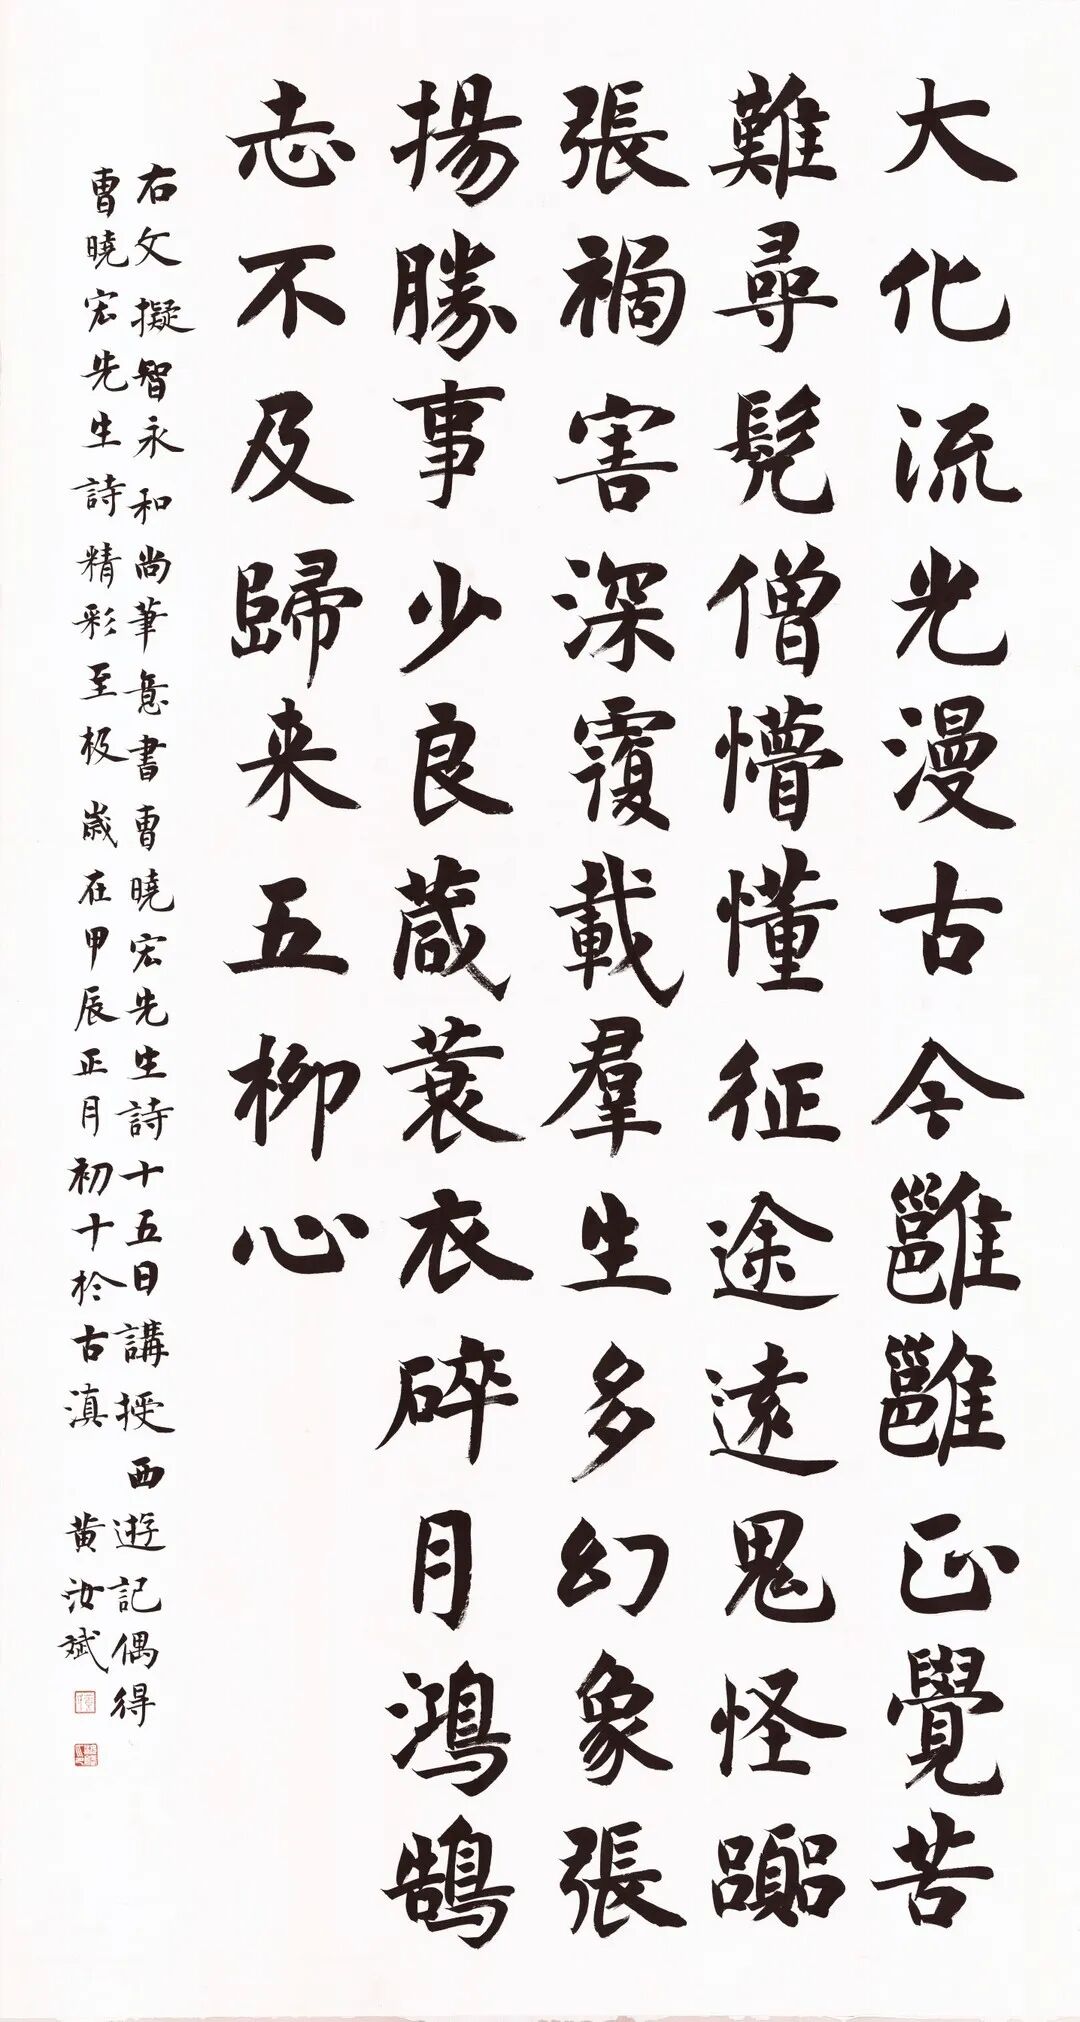 大化流光漫古今雝雝正覺苦
難尋髡僧懵懂征途遠鬼怪囂
張禍害深覆載羣生多幻象張
揚勝事少良箴蓑衣碎月鴻鵠
志不及歸来五柳心
右文擬智永和尚筆意書曹曉宏先生詩十五日講授西遊記偶得
曹曉宏先生詩精彩至极 歲在甲辰正月初十於古滇 黄汝斌